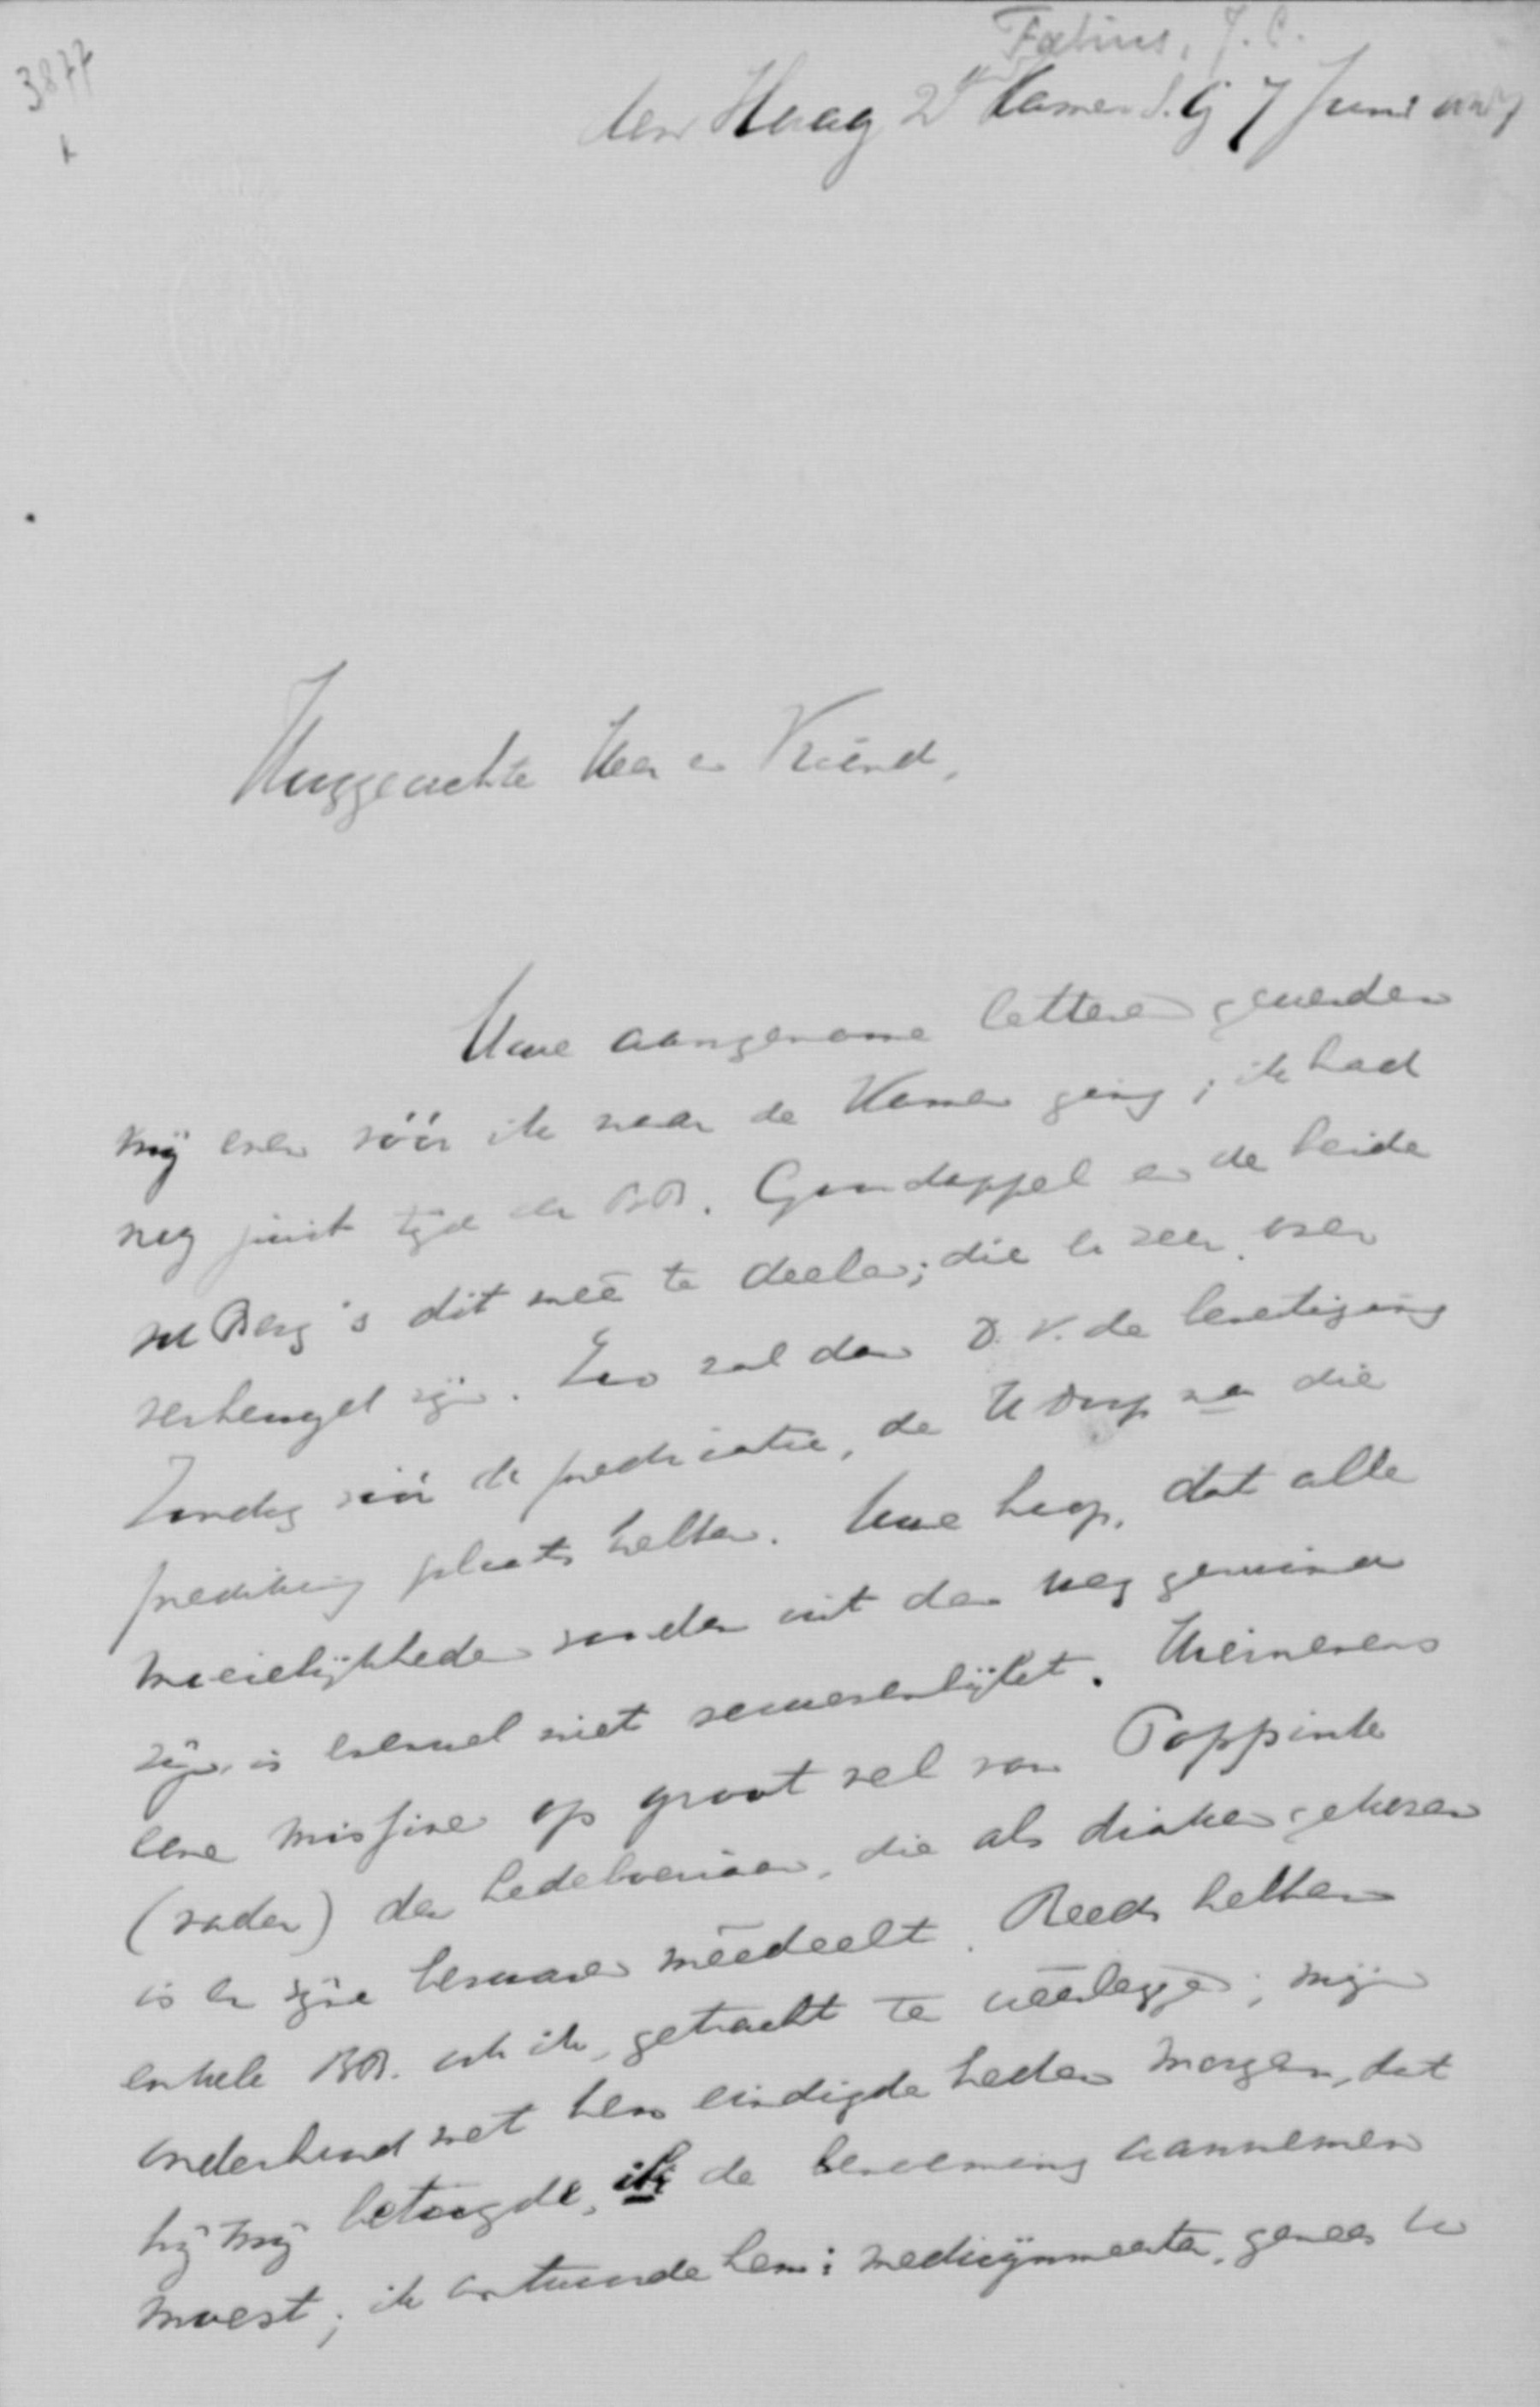 3877
Fabius, J. C.
den Haag 2e Kamer d.G 7 Juni
Hooggeachte Heer en Vriend,
Uwe aangename letteren gewerden
mij even vóór ik naar de Kamer ging; ik had
nog juist tijd de BB. Gendappel en de beide
vd Berg's dit mee te deelen; die er zeer over
verheugd zijn. Zoo zal dan D.V. de bevestiging
Zondag vóór de predicatie, de H Doop na die
prediking plaats hebben. Uwe hoop, dat alle
moeielijkheden zouden uit den weg geruimd
zijn, is evenwel niet verwezenlijkt. Hiernevens
eene missive op groot vel van Poppink
(vader) den Ledeboeriaan, die als diaken gekozen
is en zijne bezwaren meedeelt. Reeds hebben
enkele BB. ook ik, getracht te weerleggen; mijn
onderhoud met hem eindigde heden morgen, dat
hij mij betoogde, ik de benoeming aannemen
moest; ik antwoordde hem: medicijnmeester, genees u